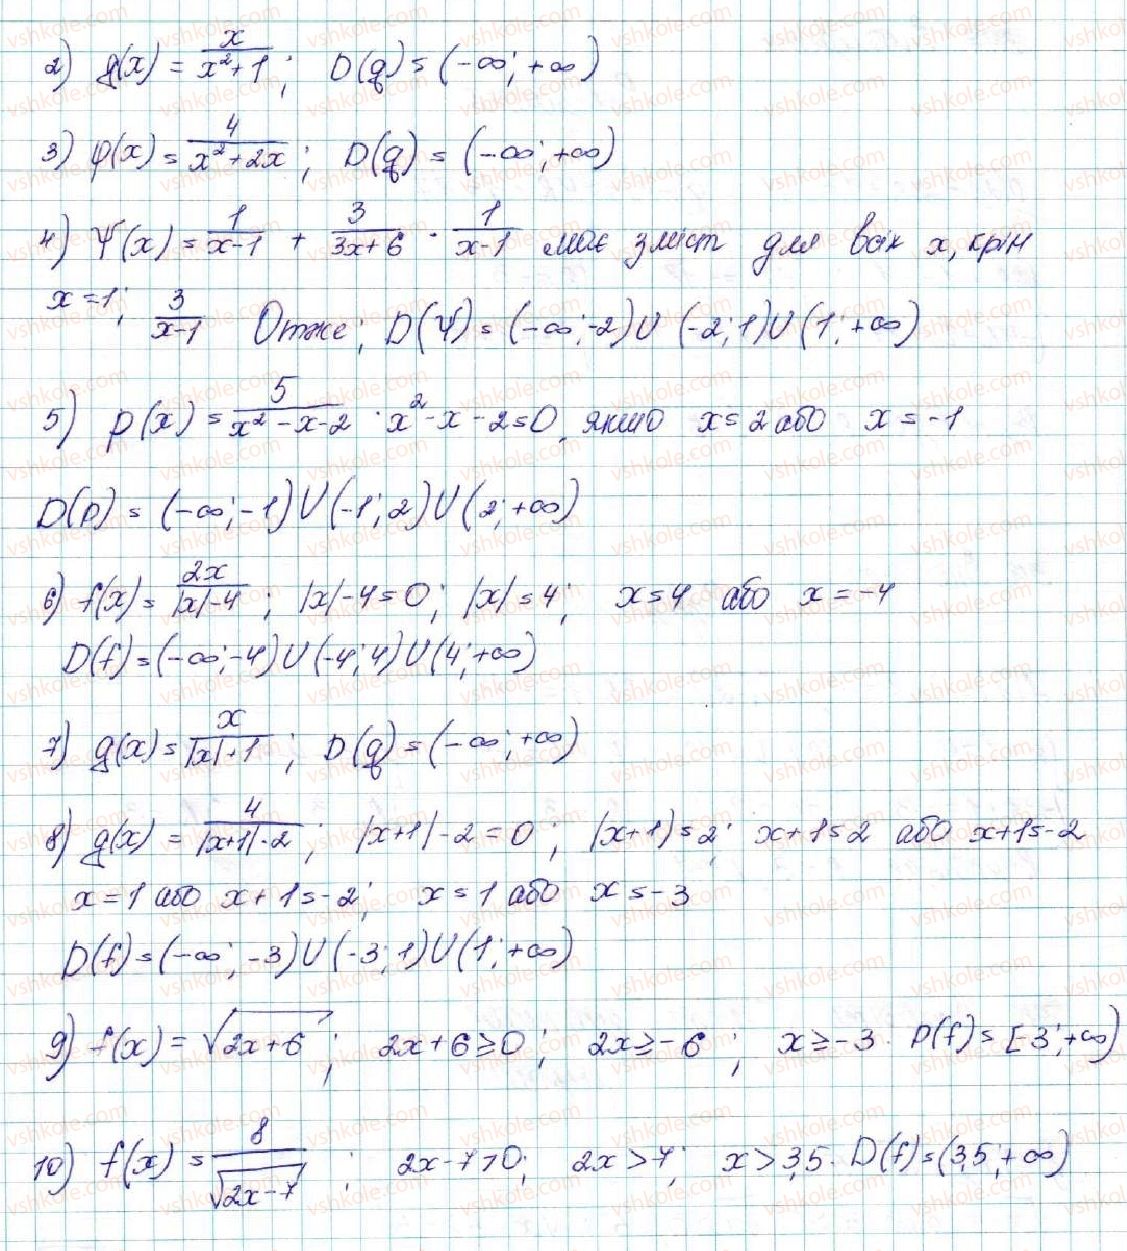 2) g(x) = x/(x²+1); D(g) = (-∞; +∞)
3) φ(x) = 4/(x²+2x); D(g) = (-∞; +∞)
4) Ψ(x) = 1/(x-1) + 3/(3x+6) · 1/(x-1) має зміст для всіх x, крім
x = 1; 3/(x-1) Отже; D(Ψ) = (-∞; -2) U (-2; 1) U (1; +∞)
5) p(x) = 5/(x²-x-2) · x²-x-2=0, якщо x=2 або x=-1
D(p) = (-∞; -1) U (-1; 2) U (2; +∞)
6) f(x) = 2x/(|x|-4); |x|-4=0; |x|=4; x=4 або x=-4
D(f) = (-∞; -4) U (-4; 4) U (4; +∞)
7) g(x) = x/(|x|+1); D(g) = (-∞; +∞)
8) g(x) = 4/(|x+1|-2); |x+1|-2=0; |x+1)=2; x+1=2 або x+1=-2
x=1 або x+1=-2; x=1 або x=-3
D(f) = (-∞; -3) U (-3; 1) U (1; +∞)
9) f(x) = √(2x+6); 2x+6≥0; 2x≥-6; x≥-3. D(f) = [-3; +∞)
10) f(x) = 8/√(2x-7); 2x-7>0; 2x>7; x>3,5. D(f) = (3,5; +∞)
vshkole.com